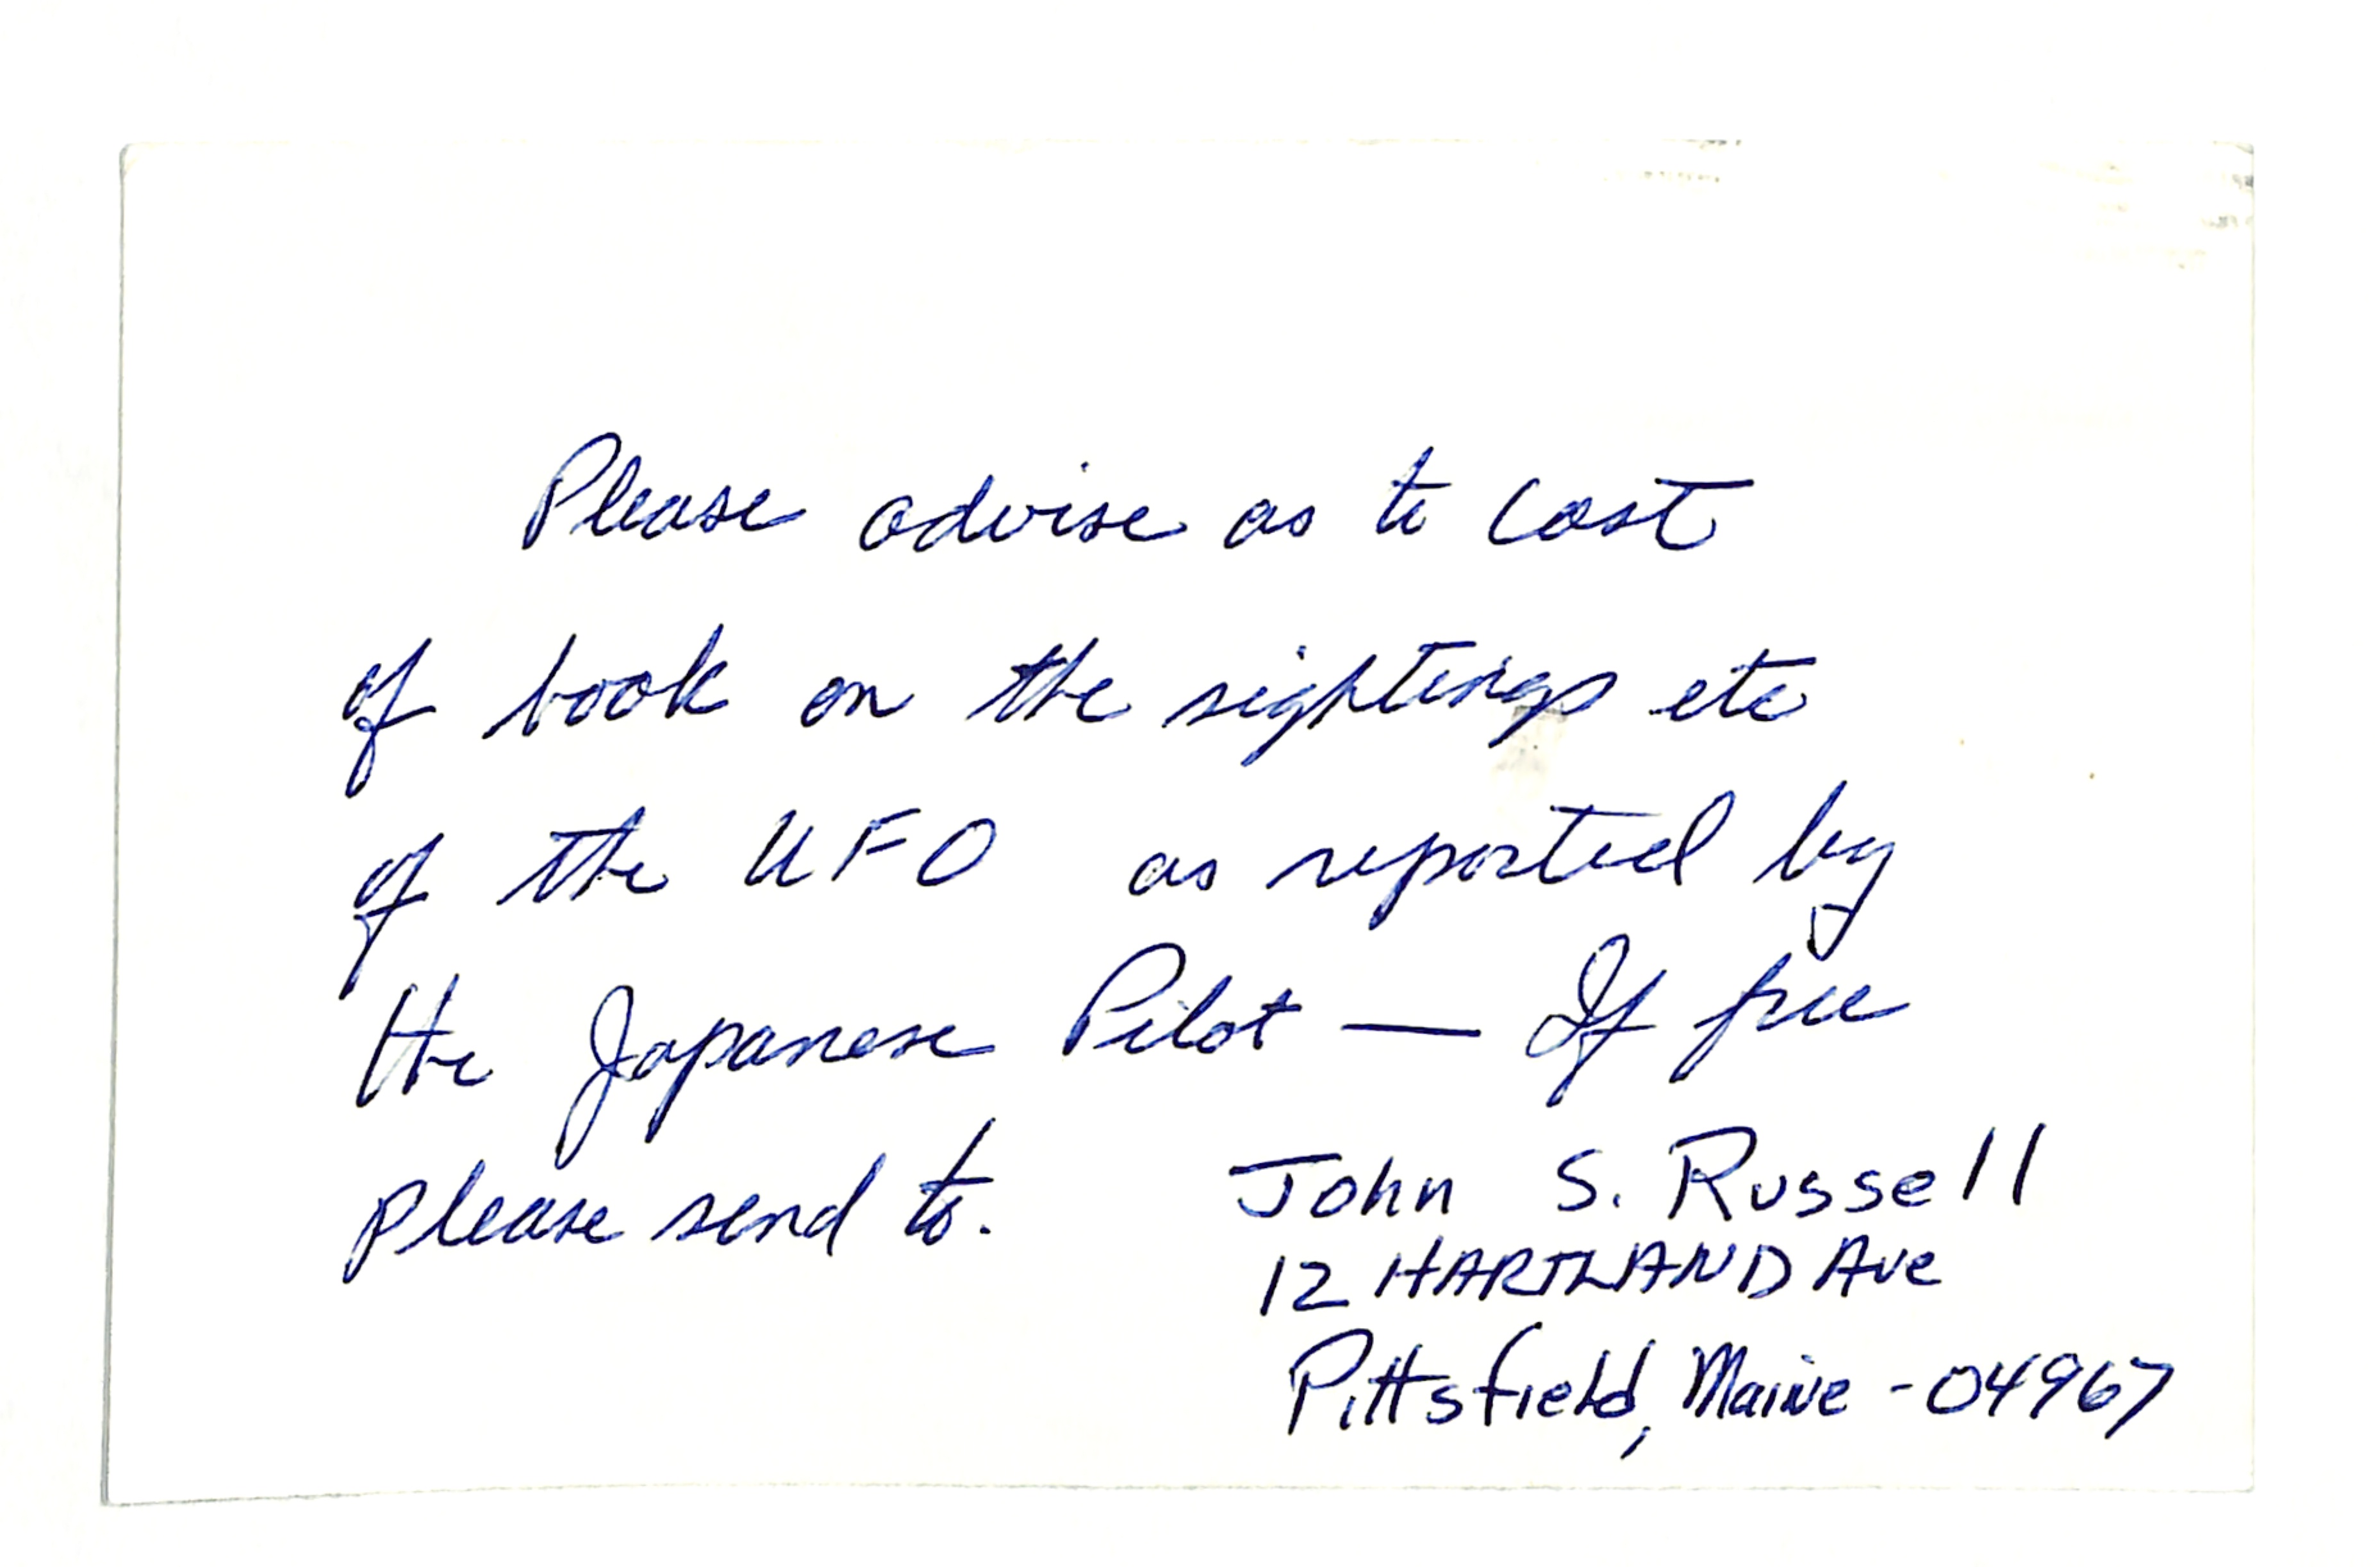 Please advise as to cost
of book on the sightings etc
of the UFO as reported by
the Japanese Pilot — If free
please send to.
John S. Russell
12 HARTLAND Ave
Pittsfield, Maine - 04967